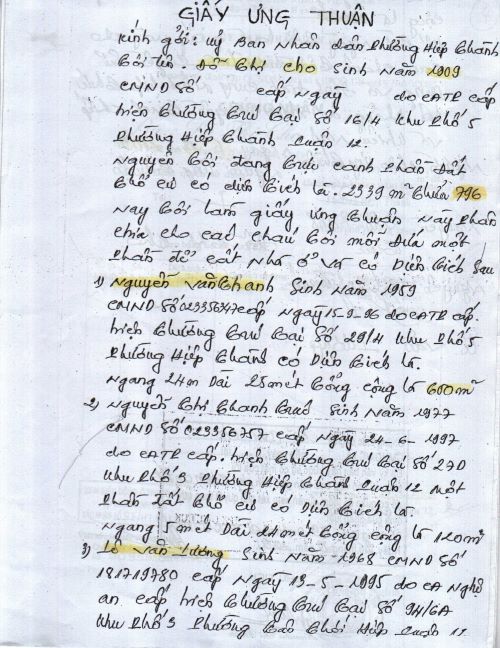 GIẤY ƯNG THUẬN
Kính gởi: Uỷ Ban Nhân dân Phường Hiệp Thành
Tôi tên. Đỗ Thị Cho Sinh Năm 1909
CMND Số cấp Ngày do CATP cấp
hiện Thường Trú tại Số 16/4 Khu Phố 5
Phường Hiệp Thành Quận 12.
Nguyên tôi đang Trực canh Phần Đất
Thổ cư có diện Tích là. 2339 m² Thửa 796
Nay tôi làm giấy ưng Thuận Này Phân
chia cho các cháu tôi mỗi Đứa một
Phần để cất Nhà ở và có Diện Tích Sau
1) Nguyễn Văn Thanh Sinh Năm 1959
CMND Số 023356347 cấp Ngày 15-9-96 do CATP cấp.
hiện Thường Trú tại Số 29/4 Khu Phố 5
Phường Hiệp Thành có Diện Tích là.
Ngang 24m Dài 25 mét Tổng cộng là 600m²
2) Nguyễn Thị Thanh Trúc Sinh Năm 1977
CMND Số 023356757 cấp Ngày 24-6-1997
do CATP cấp. hiện Thường Trú tại Số 27D
Khu Phố 3 Phường Hiệp Thành Quận 12 một
Phần Đất Thổ cư có Diện Tích là.
Ngang 5 mét Dài 24 mét Tổng cộng là 120m²
3) Lô Văn Lương Sinh Năm 1968 CMND Số
181719780 cấp Ngày 13-5-1995 do CA Nghệ
an cấp hiện Thường Trú tại Số 94/6A
Khu Phố 3 Phường Tân Thới Hiệp Quận 12